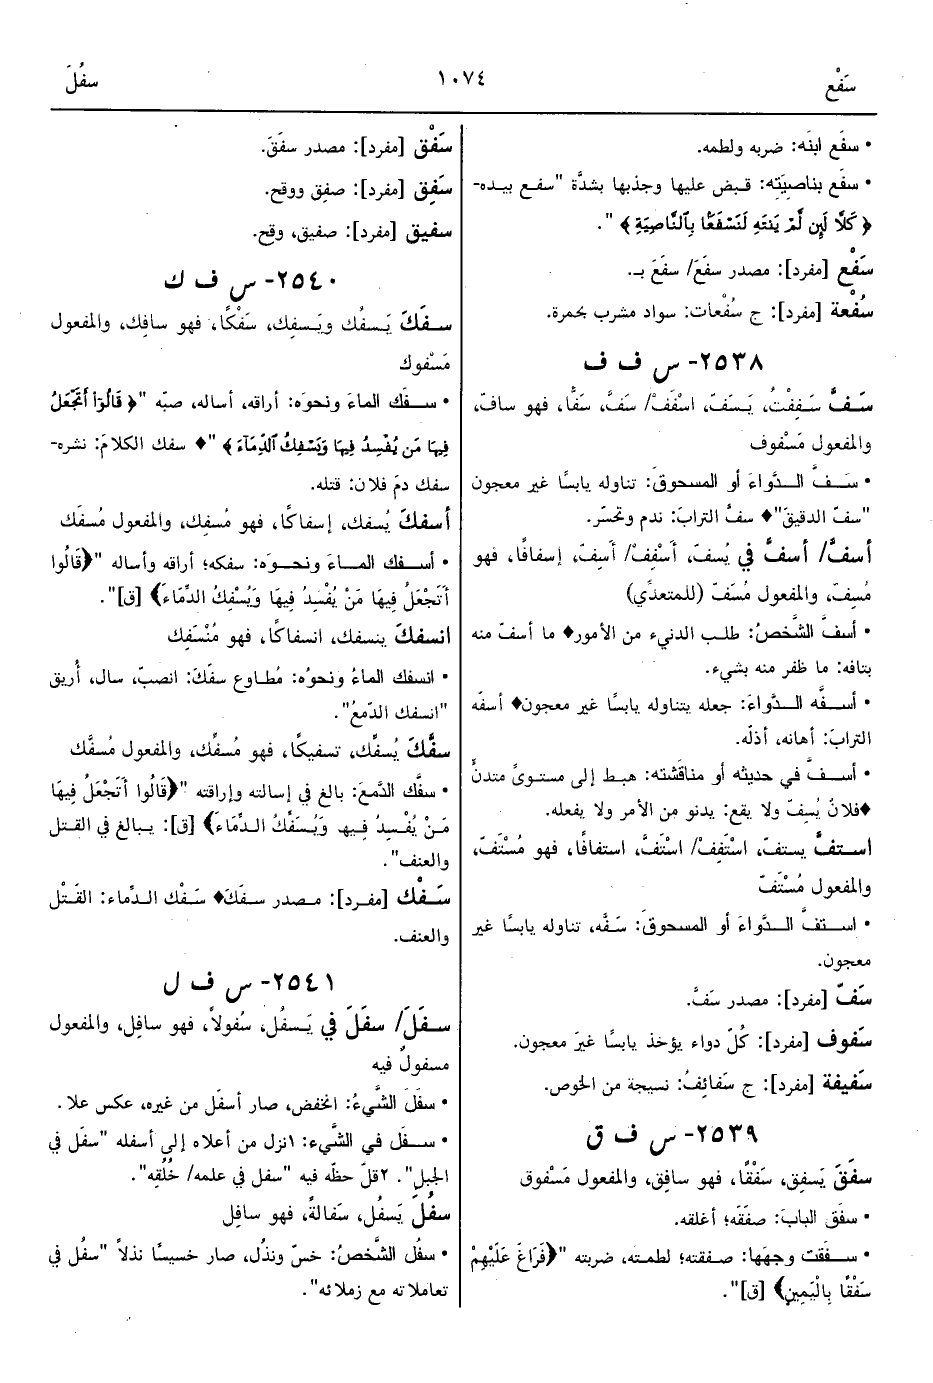 سَفْع
١٠٧٤
سفُلَ
• سفَع ابنَه: ضربه ولطمه.
• سفَع بناصيَتِه: قبض عليها وجذبها بشدَّة "سفع بيده-
﴿كَلَّا لَئِن لَّمْ يَنتَهِ لَنَسْفَعًا بِٱلنَّاصِيَةِ﴾".
سَفْع [مفرد]: مصدر سفَعَ/ سفَعَ بـ.
سُفْعة [مفرد]: ج سُفْعات: سواد مشرب بحمرة.
٢٥٣٨- س ف ف
سَفَّ سَفِفْتُ، يَسَفّ، اسْفَفْ/ سَفَّ، سَفًّا، فهو سافّ،
والمفعول مَسْفوف
• سَفَّ الدَّواءَ أو المسحوقَ: تناوله يابسًا غير معجون
"سفّ الدقيقَ"♦ سفَّ الترابَ: ندم وتحسّر.
أسفَّ/ أسفَّ في يُسفّ، أَسْفِفْ/ أسِفّ، إسفافًا، فهو
مُسِفّ، والمفعول مُسَفّ (للمتعدِّي)
• أسفَّ الشَّخصُ: طلب الدنيء من الأمور♦ ما أسفّ منه
بتافه: ما ظفر منه بشيء.
• أسفَّه الدَّواءَ: جعله يتناوله يابسًا غير معجون♦ أسفّه
الترابَ: أهانه، أذلّه.
• أسفَّ في حديثه أو مناقشته: هبط إلى مستوىً متدنٍّ
♦فلانٌ يُسِفّ ولا يقع: يدنو من الأمر ولا يفعله.
استفَّ يستفّ، اسْتَفِفْ/ اسْتَفَّ، استفافًا، فهو مُسْتَفّ،
والمفعول مُسْتَفّ
• استفَّ الدَّواءَ أو المسحوقَ: سَفَّه، تناوله يابسًا غير
معجون.
سَفّ [مفرد]: مصدر سَفَّ.
سَفوف [مفرد]: كُلّ دواء يؤخذ يابسًا غيرَ معجون.
سَفيفة [مفرد]: ج سَفائفُ: نسيجة من الخوص.
٢٥٣٩- س ف ق
سفَقَ يَسفِق، سَفْقًا، فهو سافِق، والمفعول مَسْفوق
• سفَق البابَ: صفَقَه؛ أغلقه.
• سفَقت وجهَها: صفقته؛ لطمته، ضربته "﴿فَرَاغَ عَلَيْهِمْ
سَفْقًا بِالْيَمِينِ﴾ [ق]".
سَفْق [مفرد]: مصدر سفَقَ.
سَفِق [مفرد]: صفِق ووقح.
سفيق [مفرد]: صفيق، وقِح.
٢٥٤٠- س ف ك
سفَكَ يَسفُك ويَسفِك، سَفْكًا، فهو سافِك، والمفعول
مَسْفوك
• سفَك الماءَ ونحوَه: أراقه، أساله، صبّه "﴿قَالُوٓا۟ أَتَجْعَلُ
فِيهَا مَن يُفْسِدُ فِيهَا وَيَسْفِكُ ٱلدِّمَآءَ﴾"♦ سفك الكلامَ: نشره-
سفك دمَ فلان: قتله.
أسفكَ يُسفك، إسفاكًا، فهو مُسفِك، والمفعول مُسفَك
• أسفك الماءَ ونحوَه: سفكه؛ أراقه وأساله "﴿قَالُوا
أَتَجْعَلُ فِيهَا مَنْ يُفْسِدُ فِيهَا وَيُسْفِكُ الدِّمَاءَ﴾ [ق]".
انسفكَ ينسفك، انسفاكًا، فهو مُنْسَفِك
• انسفك الماءُ ونحوُه: مُطاوع سفَكَ: انصبّ، سال، أُريق
"انسفك الدّمعُ".
سفَّكَ يُسفِّك، تسفيكًا، فهو مُسفِّك، والمفعول مُسفَّك
• سفَّك الدَّمعَ: بالغ في إسالته وإراقته "﴿قَالُوا أَتَجْعَلُ فِيهَا
مَنْ يُفْسِدُ فِيهَا وَيُسَفِّكُ الدِّمَاءَ﴾ [ق]: يبالغ في القتل
والعنف".
سَفْك [مفرد]: مصدر سفَكَ♦ سَفْك الدِّماء: القَتْل
والعنف.
٢٥٤١- س ف ل
سفَلَ/ سفَلَ في يَسفُل، سُفولاً، فهو سافِل، والمفعول
مسفولٌ فيه
• سفَلَ الشَّيءُ: انخفض، صار أسفل من غيره، عكس علا.
• سفَل في الشَّيء: ١نزل من أعلاه إلى أسفله "سفَل في
الجبلِ". ٢قلّ حظّه فيه "سفل في علمه/ خُلُقِه".
سفُلَ يَسفُل، سَفالةً، فهو سافِل
• سفُل الشَّخصُ: خسّ ونذُل، صار خسيسًا نذلاً "سفُل في
تعاملاته مع زملائه".